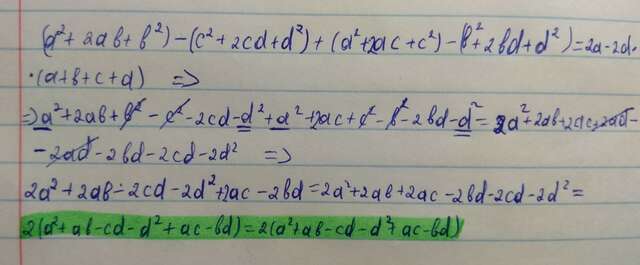 (a²+2ab+b²)-(c²+2cd+d²)+(a²+2ac+c²)-(b²+2bd+d²)=2a-2d·
·(a+b+c+d) =>
=>a²+2ab+b²-c²-2cd-d²+a²+2ac+c²-b²-2bd-d²=2a²+2ab+2ac+2ad-
-2ad-2bd-2cd-2d² =>
2a²+2ab-2cd-2d²+2ac-2bd=2a²+2ab+2ac-2bd-2cd-2d²=
2(a²+ab-cd-d²+ac-bd)=2(a²+ab-cd-d²+ac-bd)